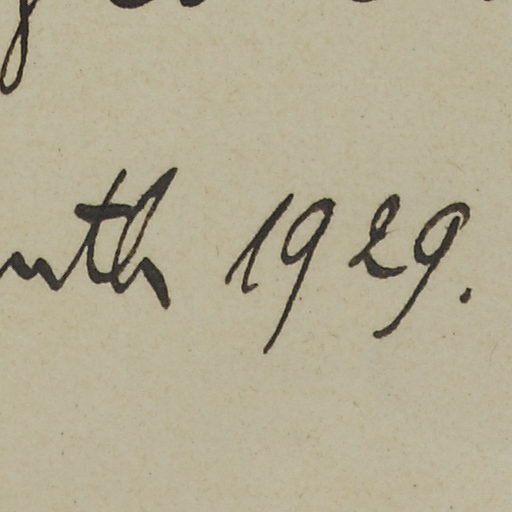 uth 1929.